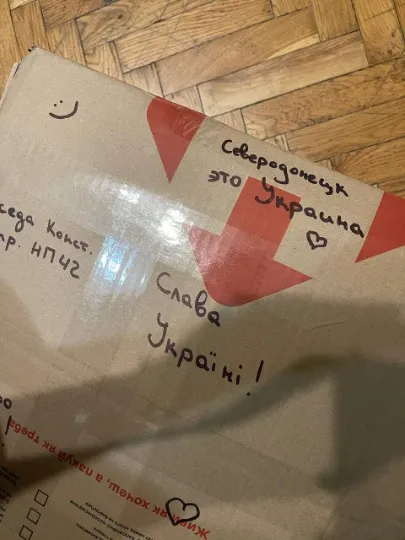 :)
Северодонецк
это Украина
♡
Конст.
пр. НПЧ2
Слава
Україні!
♡
Живи як хочеш, а пакуй як треба